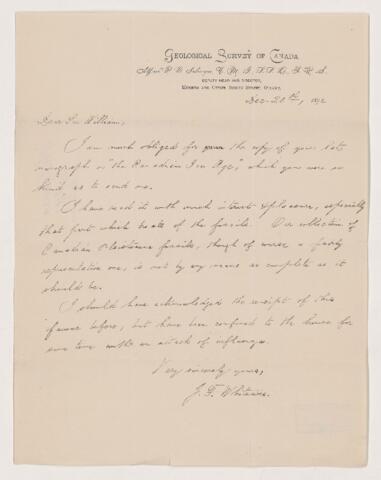 GEOLOGICAL SURVEY OF CANADA
Alfred R. C. Selwyn, C. M. G., LL. D., F. R. S.
DEPUTY HEAD AND DIRECTOR,
Dec. 20th, 1892
Dear Sir William,
I am much obliged for the copy of your late
monograph on "the Canadian Ice Age", which you were so
kind as to send me.
I have read it with much interest & pleasure, especially
that part which treats of the fossils. Our collection of
Canadian Pleistocene fossils, though of course a fairly
representative one, is not by any means as complete as it
should be.
I should have acknowledged the receipt of this
favour before, but have been confined to the house for
some time with an attack of influenza.
Very sincerely yours,
J. F. Whiteaves.